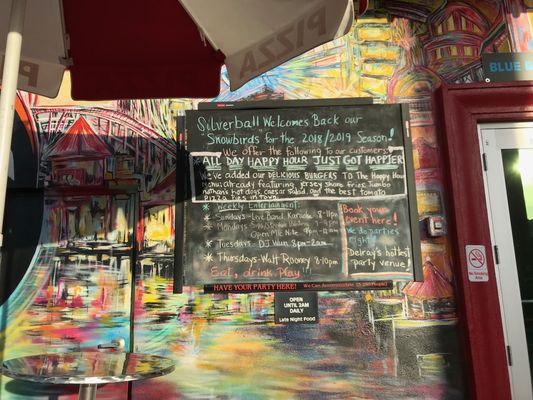 PIZZA
BLUE
Silverball Welcomes Back our
"Snowbirds for the 2018/2019 Season!
We offer the following to our customers:
ALL DAY HAPPY HOUR JUST GOT HAPPIER
We've added our DELICIOUS BURGERS TO The Happy Hour
Menu, already featuring, jersey shore fries, Jumbo
Nathan's hot dogs, caesar salad, and the best tomato
PIZZA PIES IN TOWN
Weekly Entertainment:
* Sundays - Live Band Karaoke 8-11pm
* Mondays
Open Mic Nite
* Tuesdays - DJ 8pm-2am
* Thursdays - Walt Rooney 8-10pm
Eat, drink, Play!!
Book your
event here!
We do parties
right!
Delray's hottest
party venue
HAVE YOUR PARTY HERE! We Can Accommodate
OPEN
UNTIL 2AM
DAILY
Late Night Food
NO SMOKING